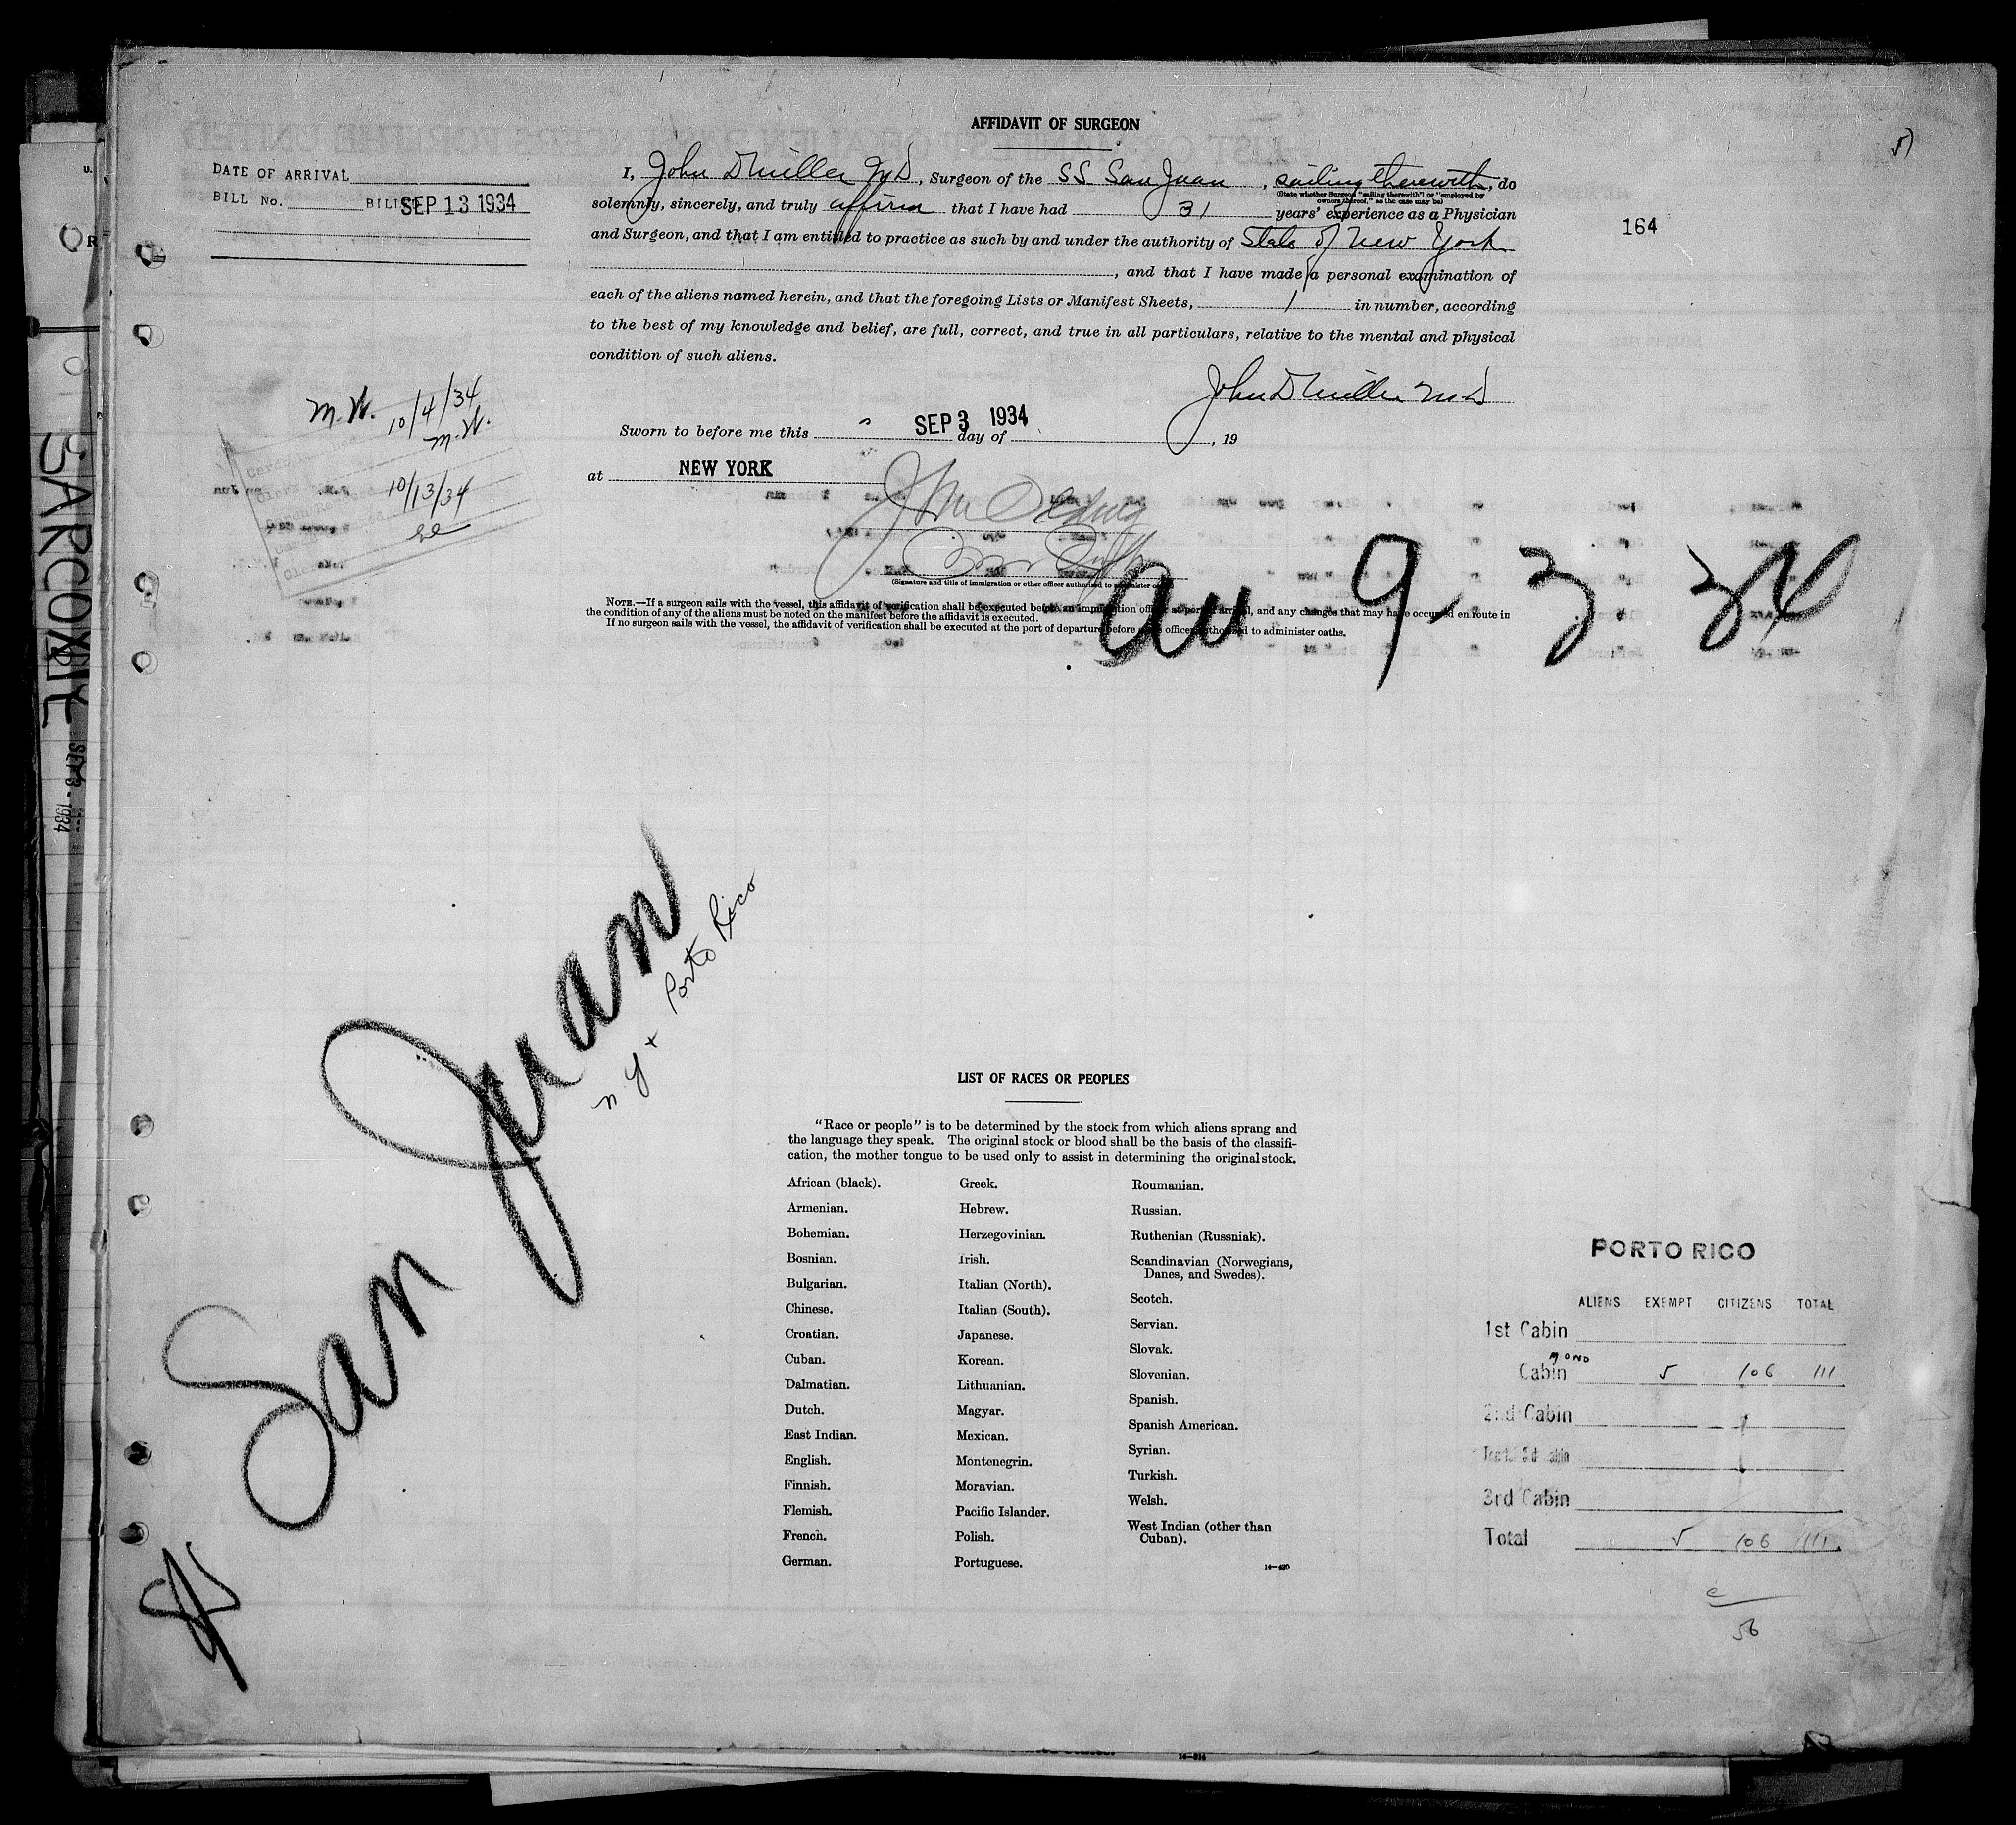 AFFIDAVIT OF SURGEON
DATE OF ARRIVAL
BILL No. BILLED SEP 13 1934
I, John D Miller M D, Surgeon of the SS San Juan, sailing therewith, do
(State whether Surgeon "sailing therewith" or "employed by
owners thereof," as the case may be)
solemnly, sincerely, and truly affirm that I have had 31 years' experience as a Physician
and Surgeon, and that I am entitled to practice as such by and under the authority of State of New York
, and that I have made a personal examination of
each of the aliens named herein, and that the foregoing Lists or Manifest Sheets, 1 in number, according
to the best of my knowledge and belief, are full, correct, and true in all particulars, relative to the mental and physical
condition of such aliens.
John D Miller M D
Sworn to before me this SEP 3 1934 day of , 19
at NEW YORK
(Signature and title of immigration or other officer authorized to administer oaths)
NOTE.—If a surgeon sails with the vessel, this affidavit of verification shall be executed before an immigration officer at port of arrival, and any changes that may have occurred en route in
the condition of any of the aliens must be noted on the manifest before the affidavit is executed.
If no surgeon sails with the vessel, the affidavit of verification shall be executed at the port of departure before an officer authorized to administer oaths.
164
M.W. 10/4/34
M.W.
10/13/34
9 3 34
San Juan
N Y + Porto Rico
SARCOXIE
SEP 3 - 1934
LIST OF RACES OR PEOPLES
"Race or people" is to be determined by the stock from which aliens sprang and
the language they speak. The original stock or blood shall be the basis of the classifi-
cation, the mother tongue to be used only to assist in determining the original stock.
African (black).
Armenian.
Bohemian.
Bosnian.
Bulgarian.
Chinese.
Croatian.
Cuban.
Dalmatian.
Dutch.
East Indian.
English.
Finnish.
Flemish.
French.
German.
Greek.
Hebrew.
Herzegovinian.
Irish.
Italian (North).
Italian (South).
Japanese.
Korean.
Lithuanian.
Magyar.
Mexican.
Montenegrin.
Moravian.
Pacific Islander.
Polish.
Portuguese.
Roumanian.
Russian.
Ruthenian (Russniak).
Scandinavian (Norwegians,
Danes, and Swedes).
Scotch.
Servian.
Slovak.
Slovenian.
Spanish.
Spanish American.
Syrian.
Turkish.
Welsh.
West Indian (other than
Cuban).
PORTO RICO
ALIENS EXEMPT CITIZENS TOTAL
1st Cabin
Cabin 5 106 111
2nd Cabin
3rd Cabin
Total 5 106 111
56